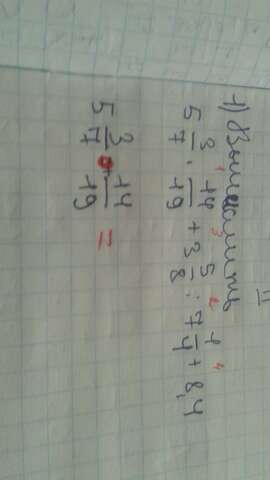 II
1) Вычислить
5 3/7 · 14/19 + 3 5/8 : 7 1/4 + 8,4
1 3 2 4
5 3/7 · 14/19 =